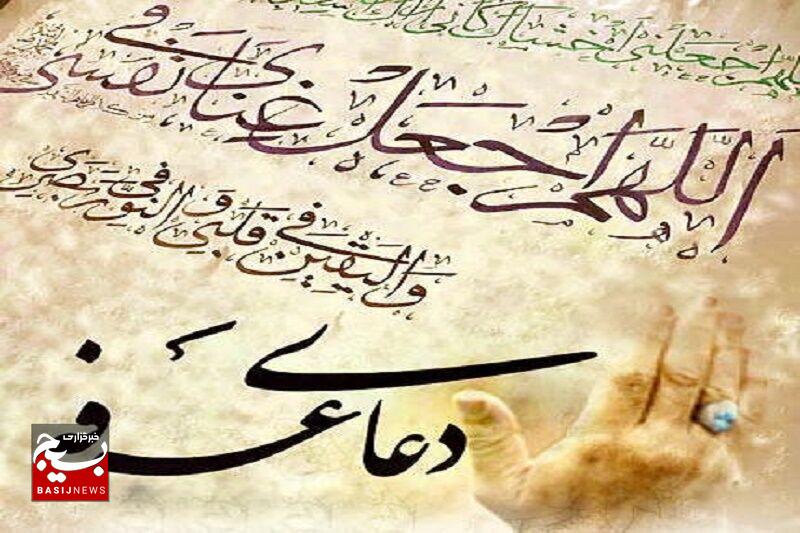 اجعلنی اخشاک کانی اراک
اللهم اجعل غنای فی نفسی
والیقین فی قلبی و النور فی بصری
دعای عرفه
خبرگزاری
بسیج
BASIJNEWS